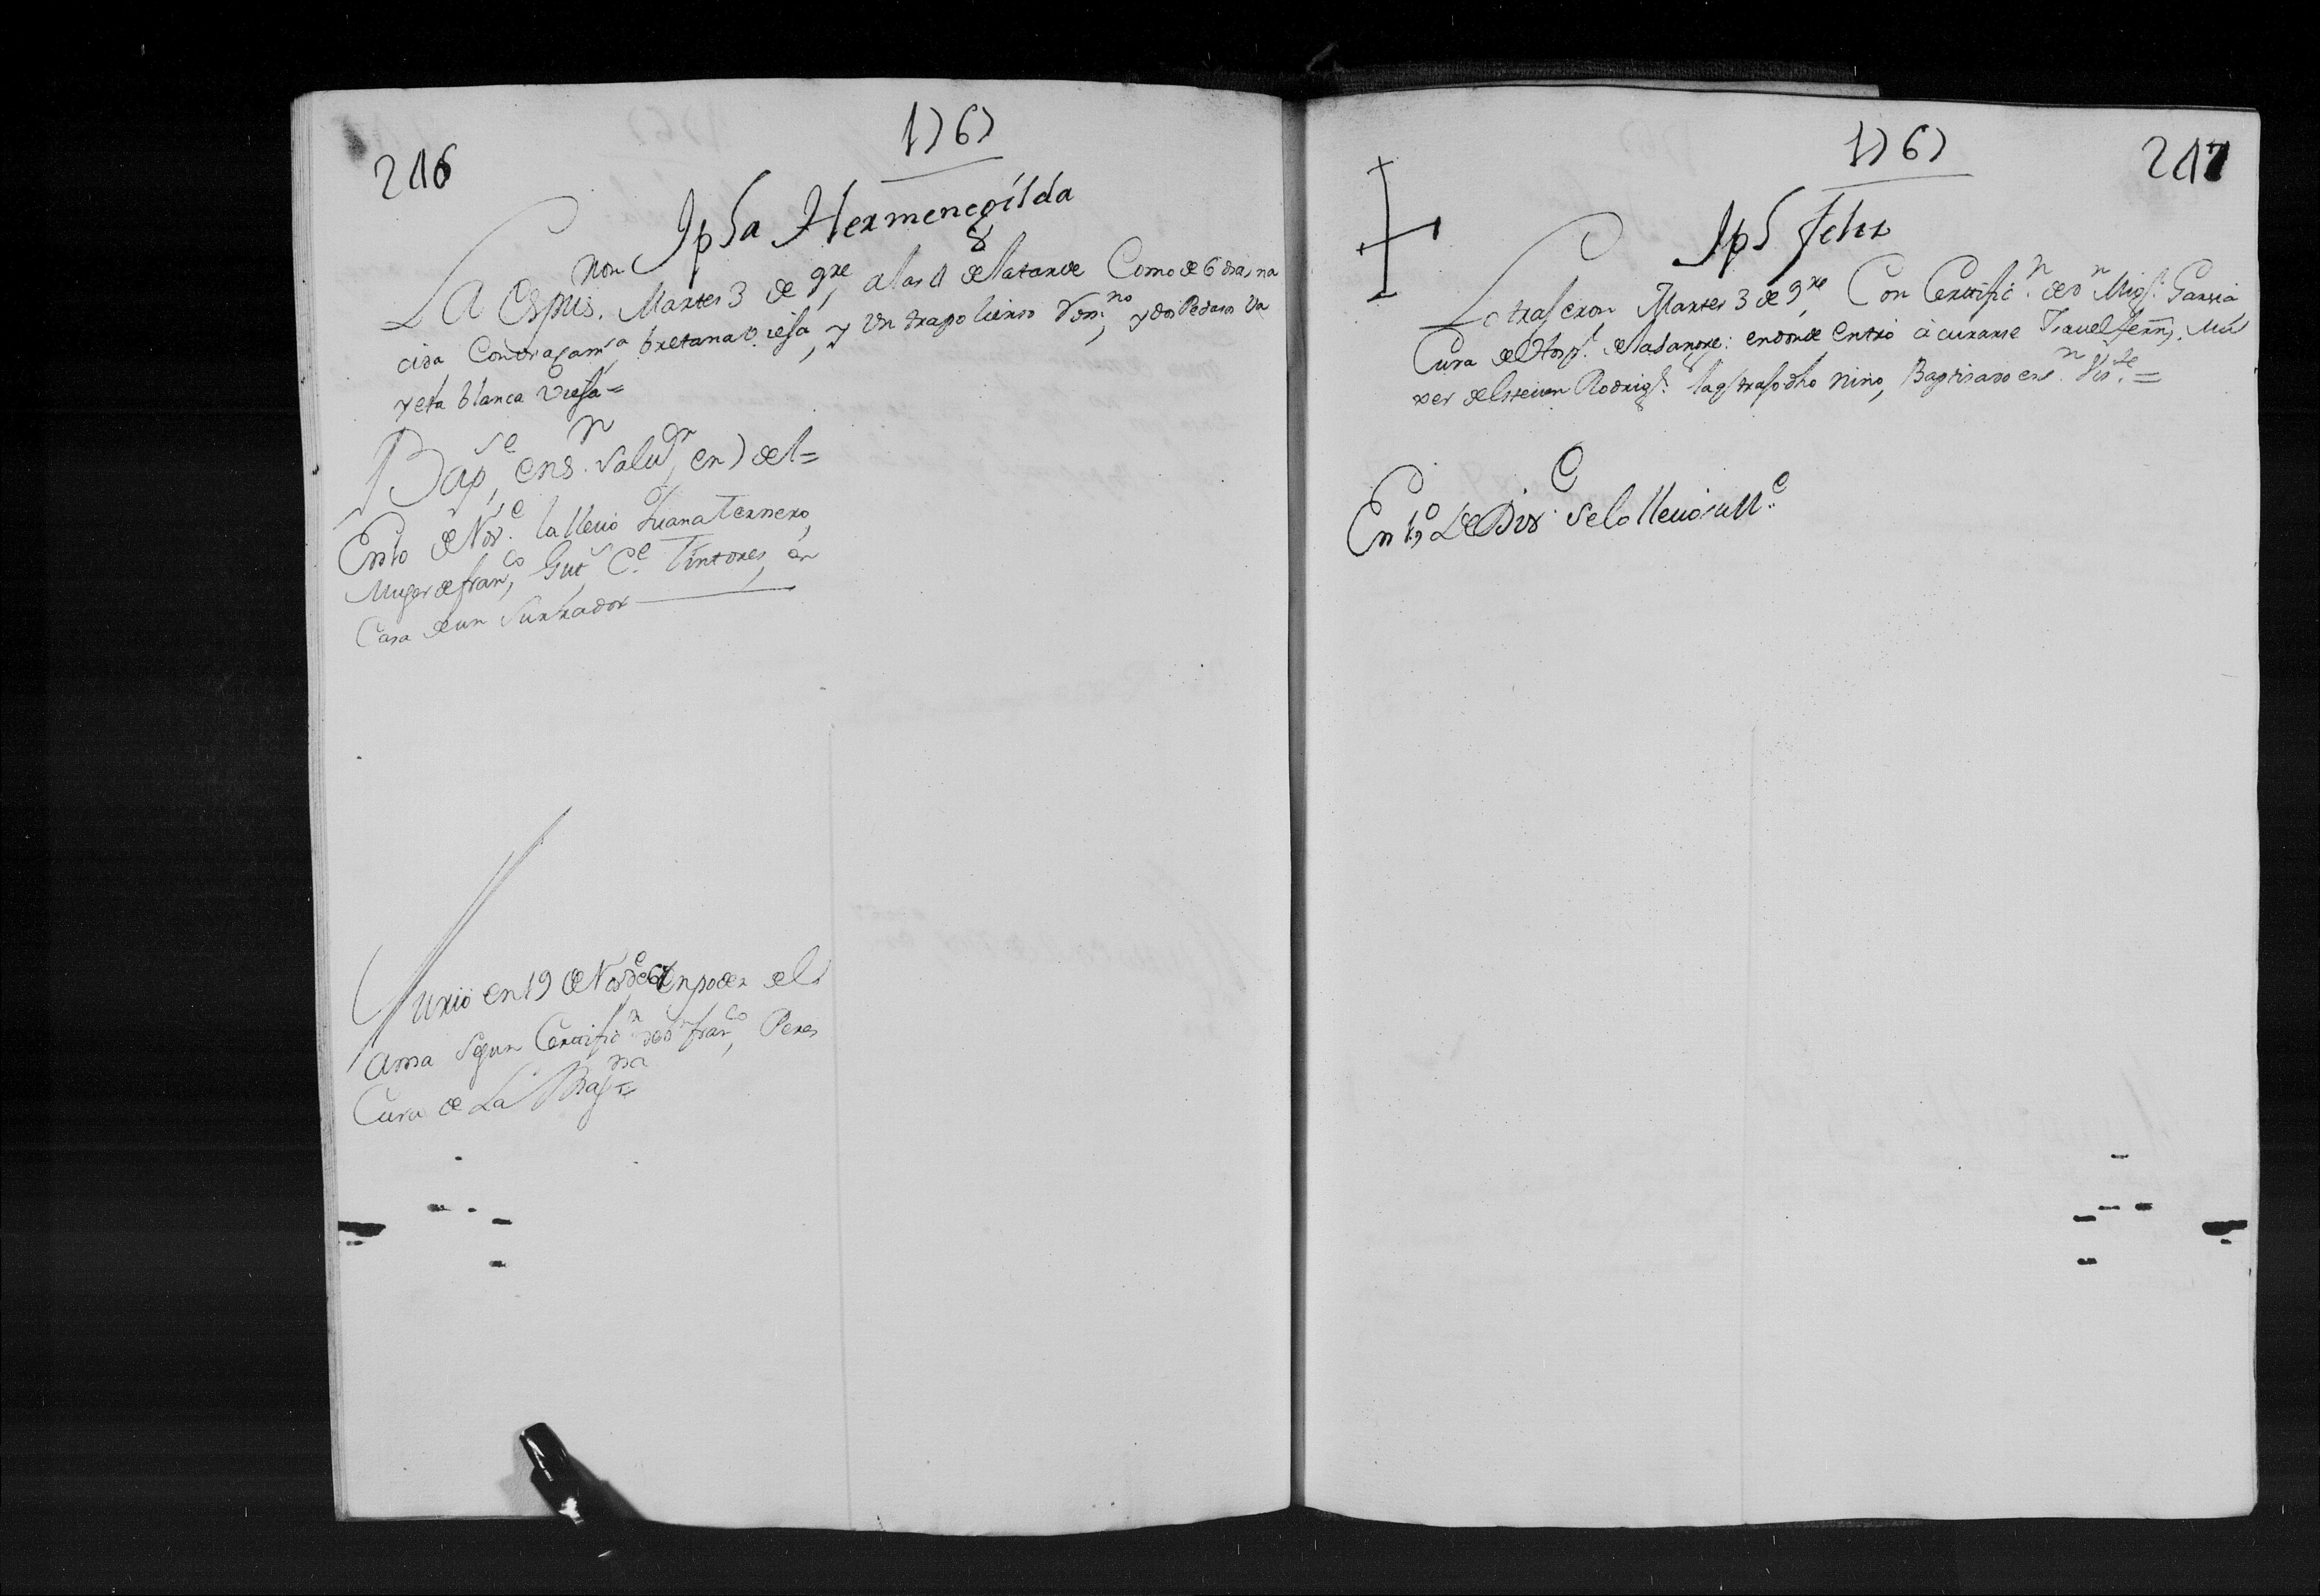 246
1767
Jpha Hermenegilda
La Espus.ron Martes 3 de 9re, a las 4 de la tarde Como de 6 dias na
cida Con dragam.sa bretana viesa, y un trapo lienso Ven.no, y dos Pedasos Va
yeta blanca viesa =
Bap.se en S. Salu.or en 7 del =
En 10 de Nov.e la lleuo Juana Ternero,
Muger de fran.co Gut.s C.e Tintores, en
Casa de un Surrador
Murio en 19 de Nov.e de 67 en poder del
Ama Segun Certific.n de D.n fran.co Peres
Cura de La Mag.na =
1767
247
Jph Felix
Lo traseron Martes 3 de 9re, Con Certific.n de D.n Mig.l Garsia
Cura del Hosp.l de la Sangre: en donde entro a curarse Isauel fern.s, Mu
xer de Esteuan Rodrig.s la q.e traso dho nino, Baptisado en S.n Vis.te =
En 1.o de Dix.e se lo lleuo su M.e